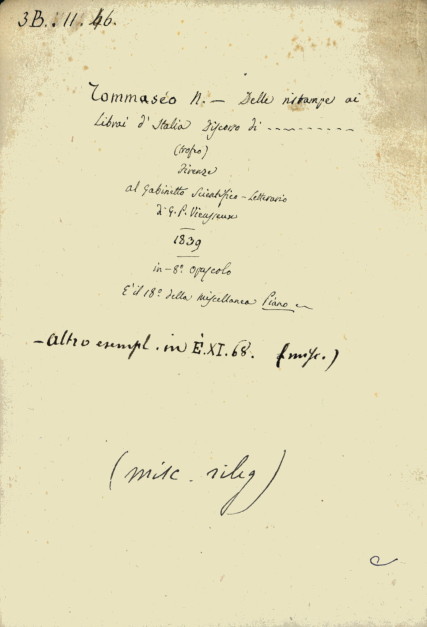 3B..11.46.
Tommaséo N. — Delle ristampe ai
Librai d'Italia Discorso di ----------
(trofeo)
Firenze
al Gabinetto Scientifico-Letterario
di G. P. Vieusseux
1839
in-8º opuscolo
E'il 18º della Miscellanea Piano
- altro esempl. in È.XI.68. (misc.)
(misc. rileg)